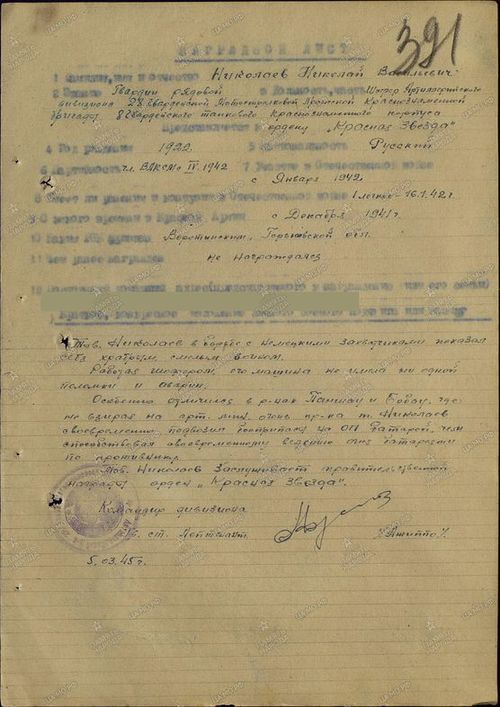 391
НАГРАДНОЙ ЛИСТ
1 Фамилия, имя и отчество Николаев Николай Васильевич
2 Звание Гвардии рядовой 3 Должность, часть Шофер Артиллерийского
дивизиона 28 Гвардейской Мотострелковой Краснознаменной
бригады 8 Гвардейского танкового Краснознаменного корпуса
Представляется к ордену „Красная Звезда“
4 Год рождения 1922 5 Национальность Русский
6 Партийность чл. ВЛКСМ с IV.1942 7 Участие в Отечественной войне
с Января 1942
8 Имеет ли ранения и контузии в Отечественной войне 1 легкое - 16.1.42 г.
9 С какого времени в Красной Армии с Декабря 1941 г
10 Каким РВК призван Воротынским, Горьковской обл.
11 Чем ранее награжден не награждался
12
Тов. Николаев в борьбе с немецкими захватчиками показал
себя храбрым, смелым воином.
Работая шофером, его машина не имела ни одной
поломки и аварии.
Особенно отличился в р-нах и где
не взирая на арт. мин. огонь пр-ка т. Николаев
своевременно подвозил боеприпасы на ОП батарей, чем
способствовал своевременному ведению огня батареями
по противнику.
Тов. Николаев заслуживает правительственной
награды орден „Красная Звезда“.
Командир дивизиона
Гв. ст. Лейтенант
5.03.45 г.